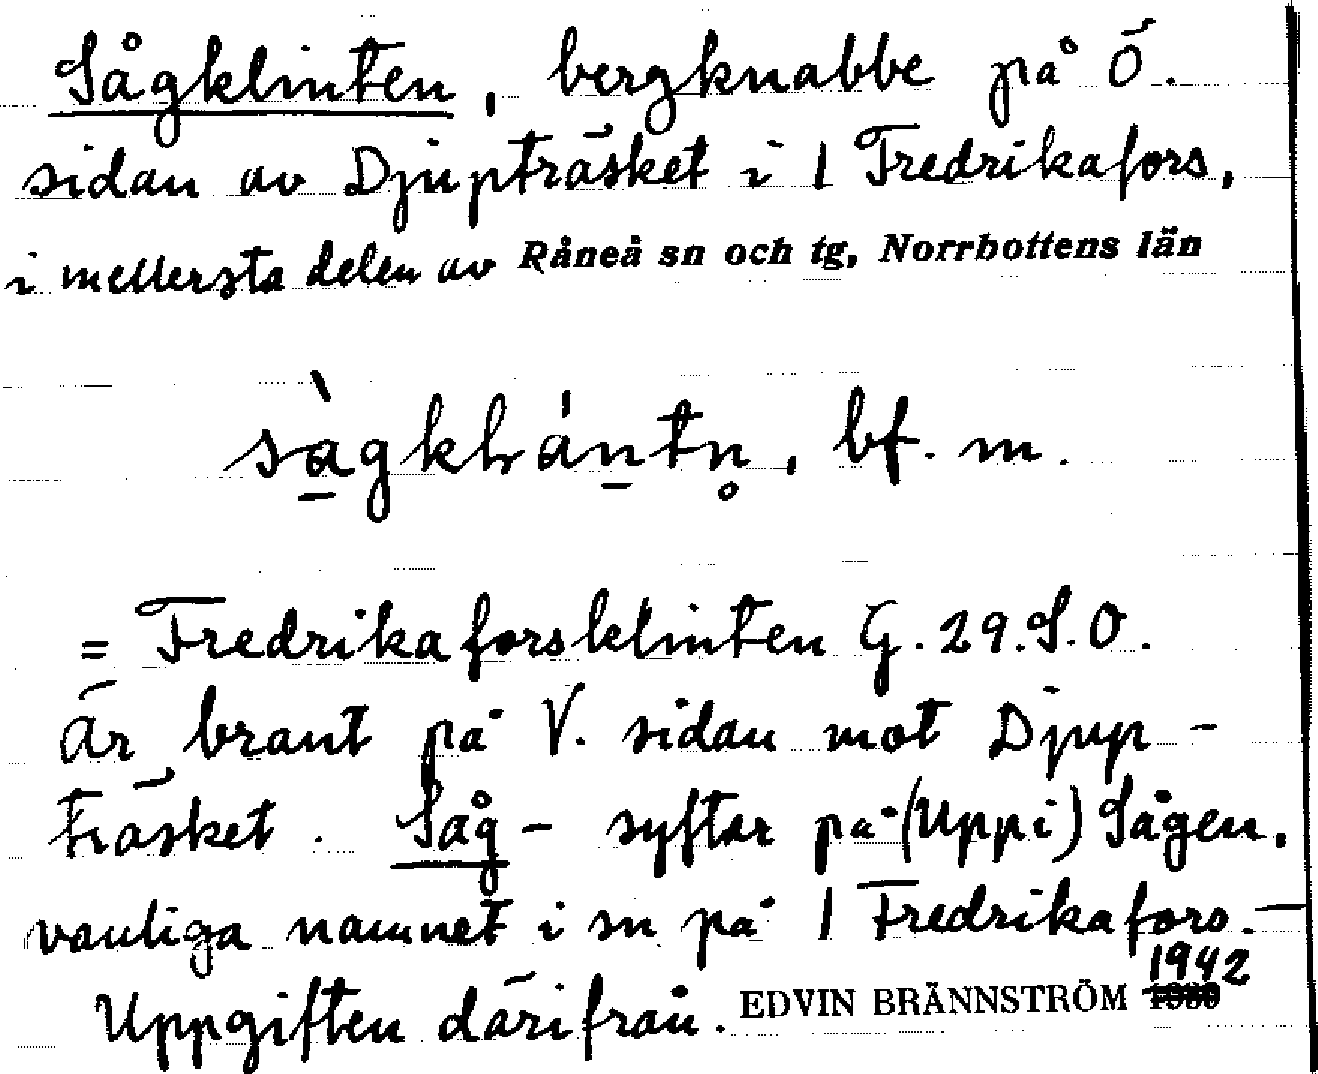 Sågklinten, bergknabbe på Ö.
sidan av Djupträsket i 1 Fredrikafors,
i mellersta delen av Råneå sn och tg, Norrbottens län
bf. m.
= Fredrikaforsklinten G. 29. S.O.
Är brant på V. sidan mot Djup-
träsket. Såg- syftar på (Uppi) Sågen,
vanliga namnet i sn på 1 Fredrikafors. —
Uppgiften därifrån. EDVIN BRÄNNSTRÖM 1942